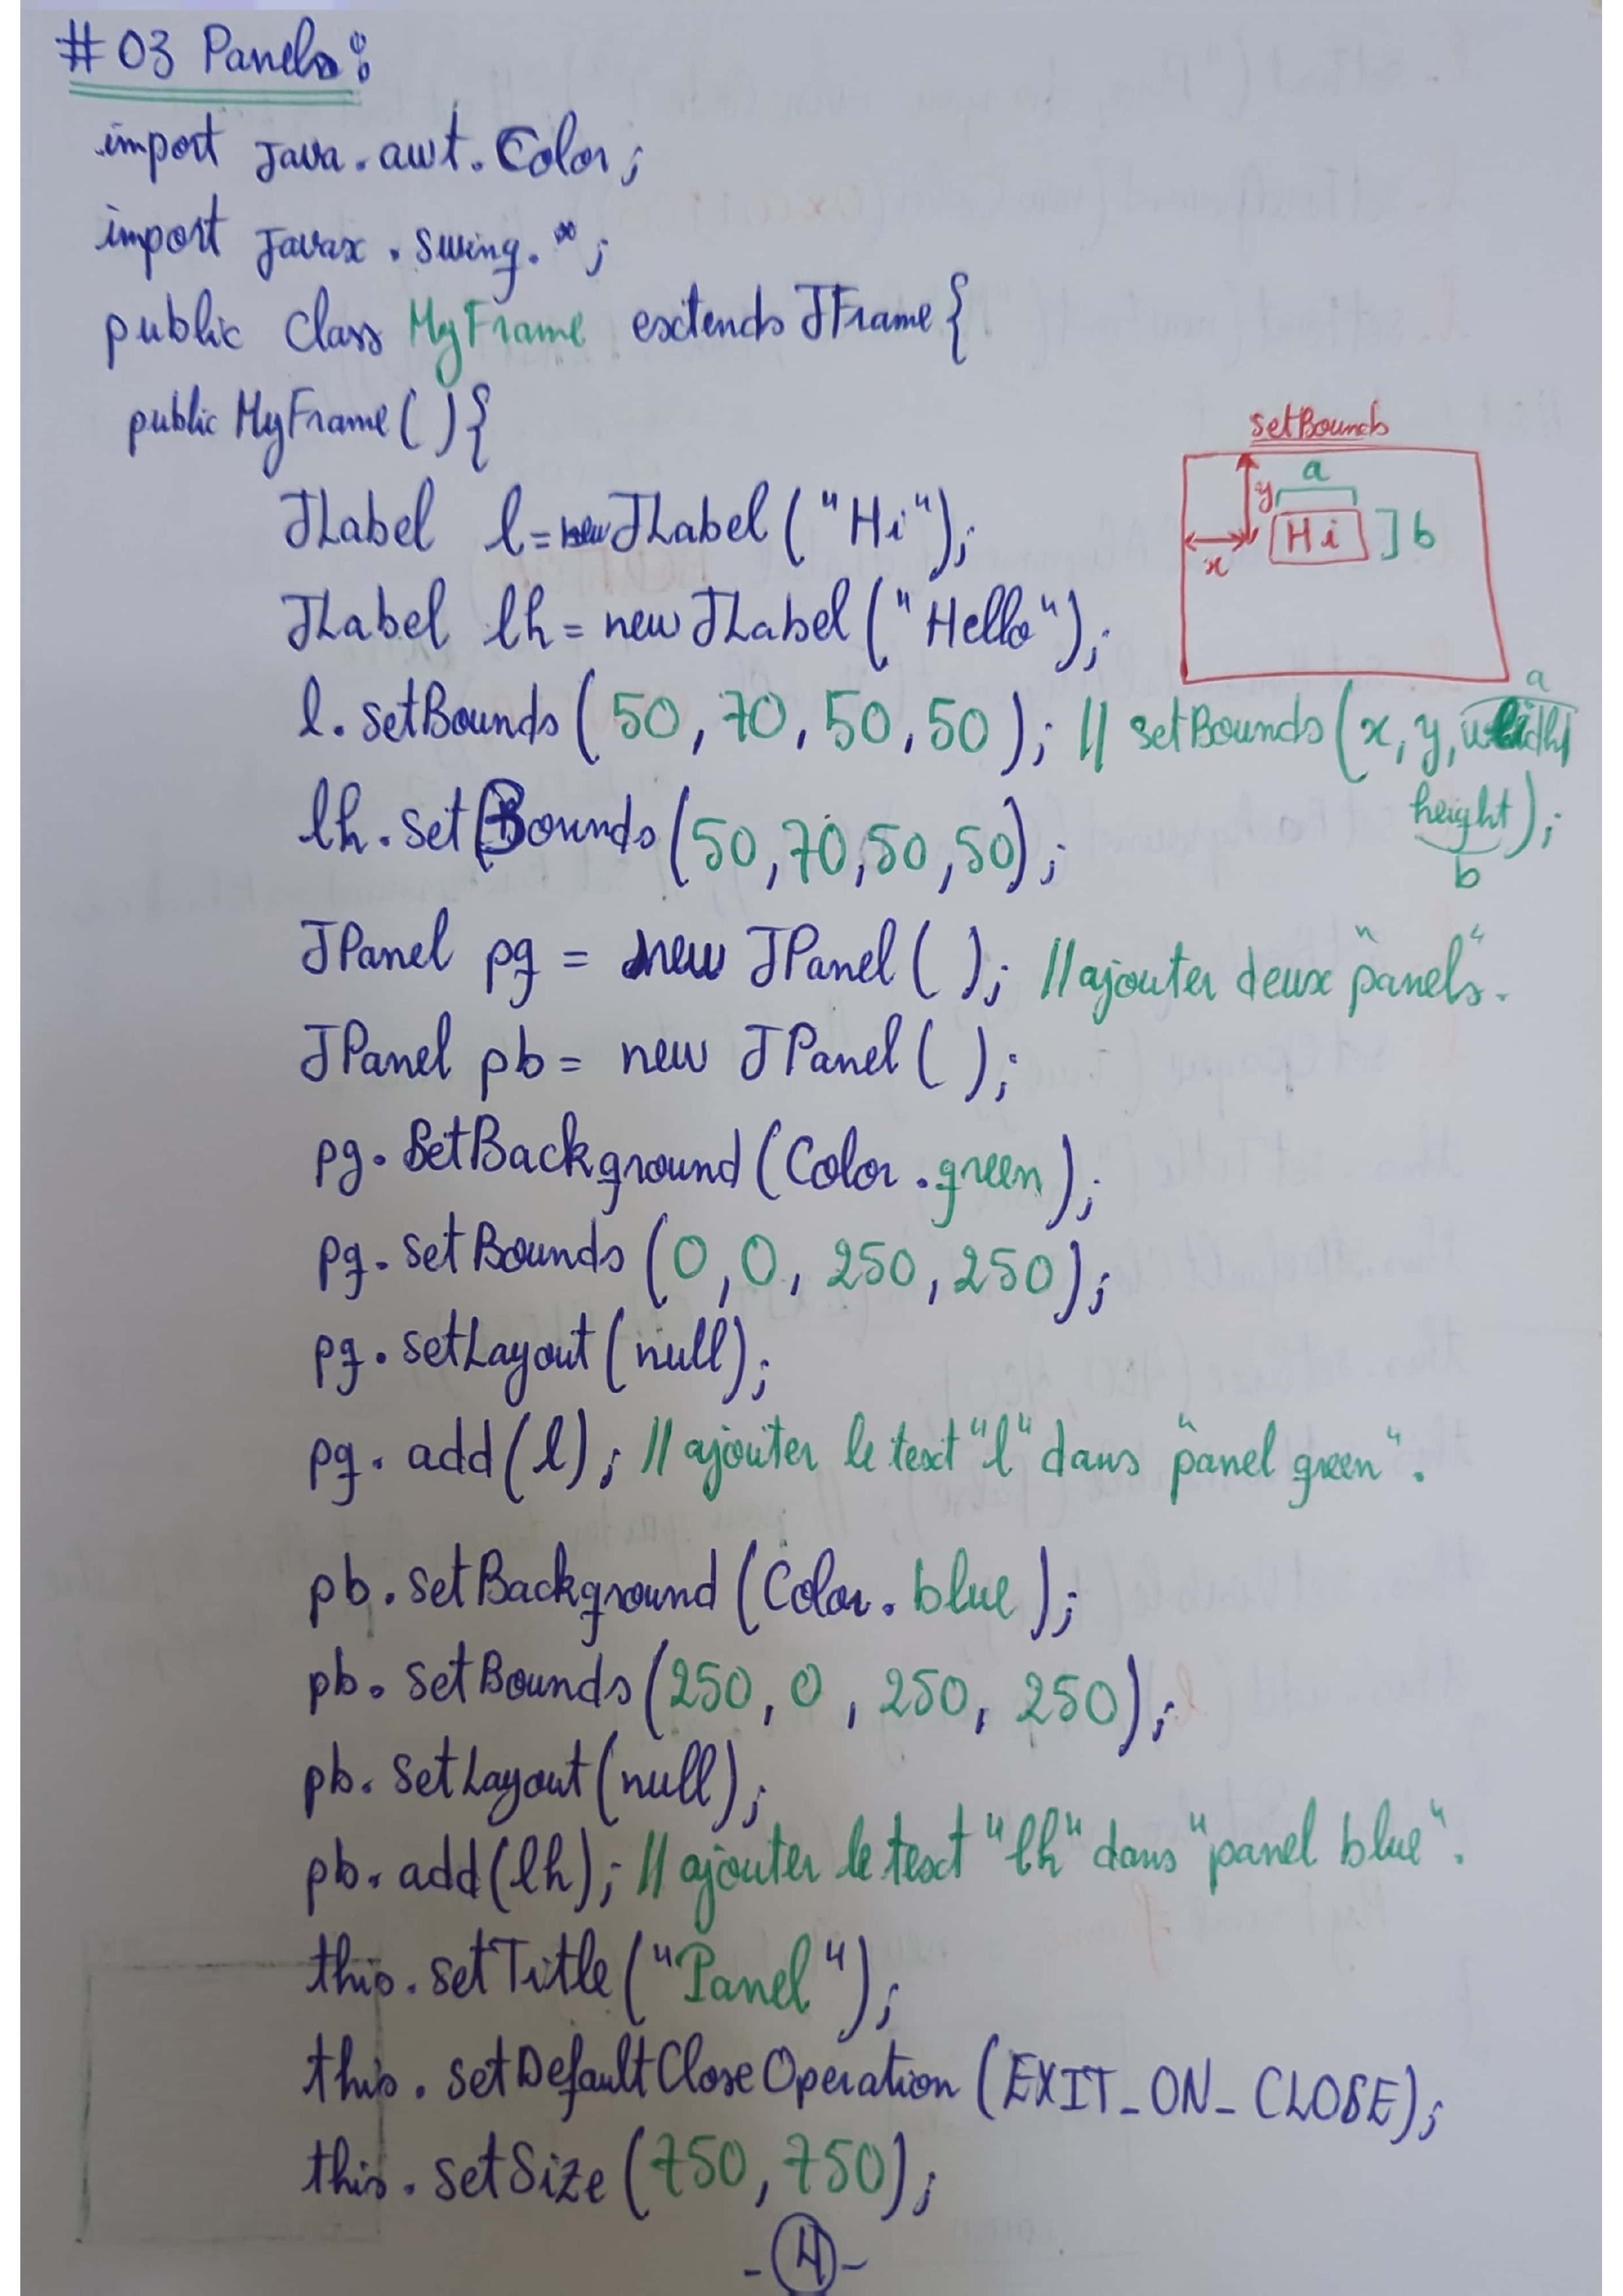 #03 Panels:
import java.awt.Color;
import javax.swing.*;
public class MyFrame extends JFrame{
public MyFrame(){
setBounds
a
y
Hi
b
x
JLabel l=new JLabel("Hi");
JLabel lh= new JLabel("Hello");
l.setBounds(50,70,50,50); // setBounds(x, y, width
a
height);
b
lh.setBounds(50,70,50,50);
JPanel pg = new JPanel(); //ajouter deux "panels".
JPanel pb= new JPanel();
pg.SetBackground(Color.green);
pg.setBounds(0,0,250,250);
pg.setLayout(null);
pg.add(l); //ajouter le text "l" dans "panel green".
pb.setBackground(Color.blue);
pb.setBounds(250,0,250,250);
pb.setLayout(null);
pb.add(lh); //ajouter le text "lh" dans "panel blue".
this.setTitle("Panel");
this.setDefaultCloseOperation(EXIT_ON_CLOSE);
this.setSize(750,750);
-4-